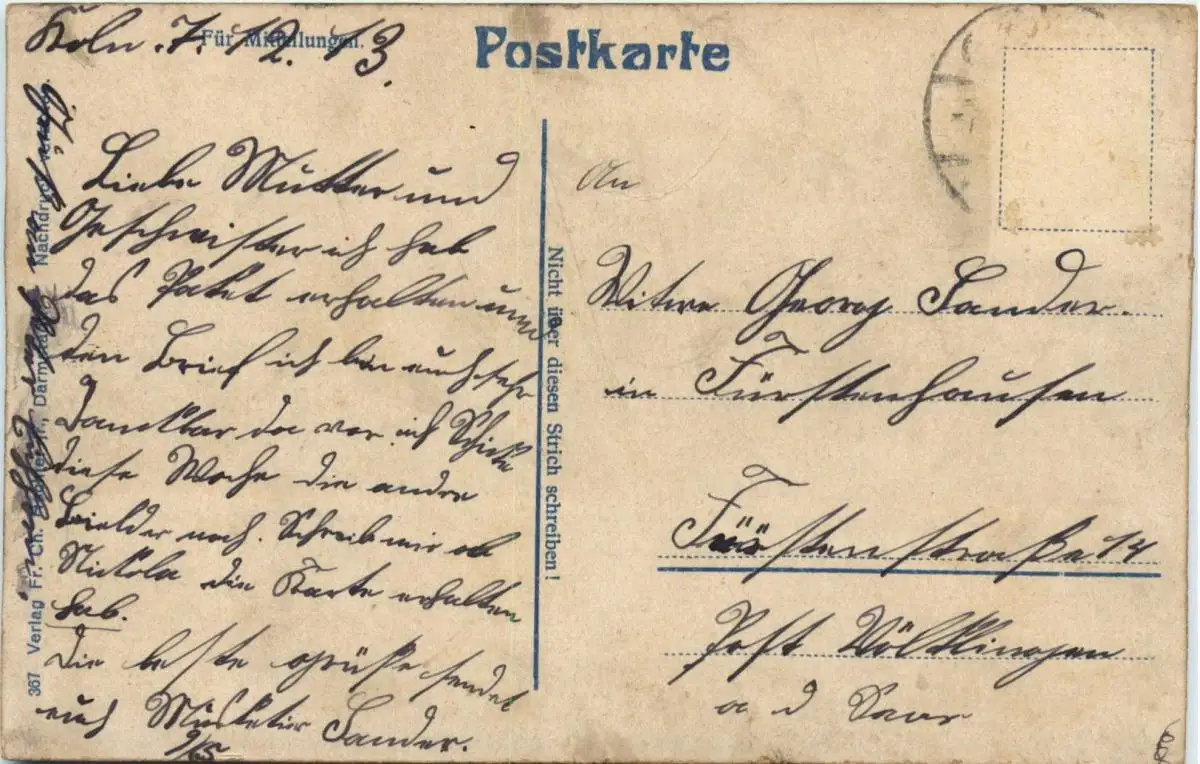 Köln. 7. 12. 13.
Für Mitteilungen.
Postkarte
Liebe Mutter und
Geschwister ich hab
das Paket erhalten und
den Brief ich bin euch sehr
Dankbar da vor ich Schicke
diese Woche die andre
Bielder noch. Schreib mir ob
Nickola die Karte erhalten
hab.
Die beste grüße sendet
euch Musketier Sander.
9/65
An
Witwe Georg Sander.
in Fürstenhausen
Fürstenstraße 14
Post Völklingen
a d Saar
Nicht über diesen Strich schreiben!
367 Verlag Fr. Ch. Darmstadt Nachdruck